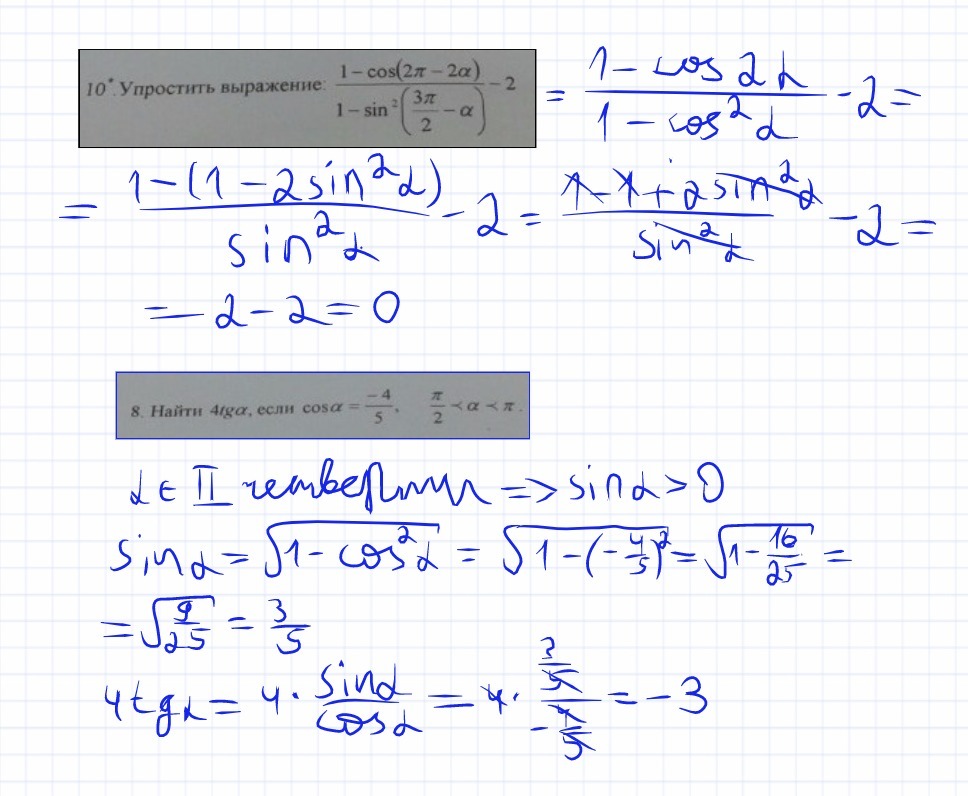 10*. Упростить выражение: (1 − cos(2π − 2α)) / (1 − sin²(3π/2 − α)) − 2 = (1 − cos 2α) / (1 − cos²α) − 2 =
= (1 − (1 − 2 sin²α)) / sin²α − 2 = (1 − 1 + 2 sin²α) / sin²α − 2 =
= 2 − 2 = 0
8. Найти 4tgα, если cosα = −4/5, π/2 ≺ α ≺ π.
α ∈ II четверти => sin α > 0
sin α = √(1 − cos²α) = √(1 − (−4/5)²) = √(1 − 16/25) =
= √(9/25) = 3/5
4tgα = 4 · sinα/cosα = 4 · (3/5)/(−4/5) = −3